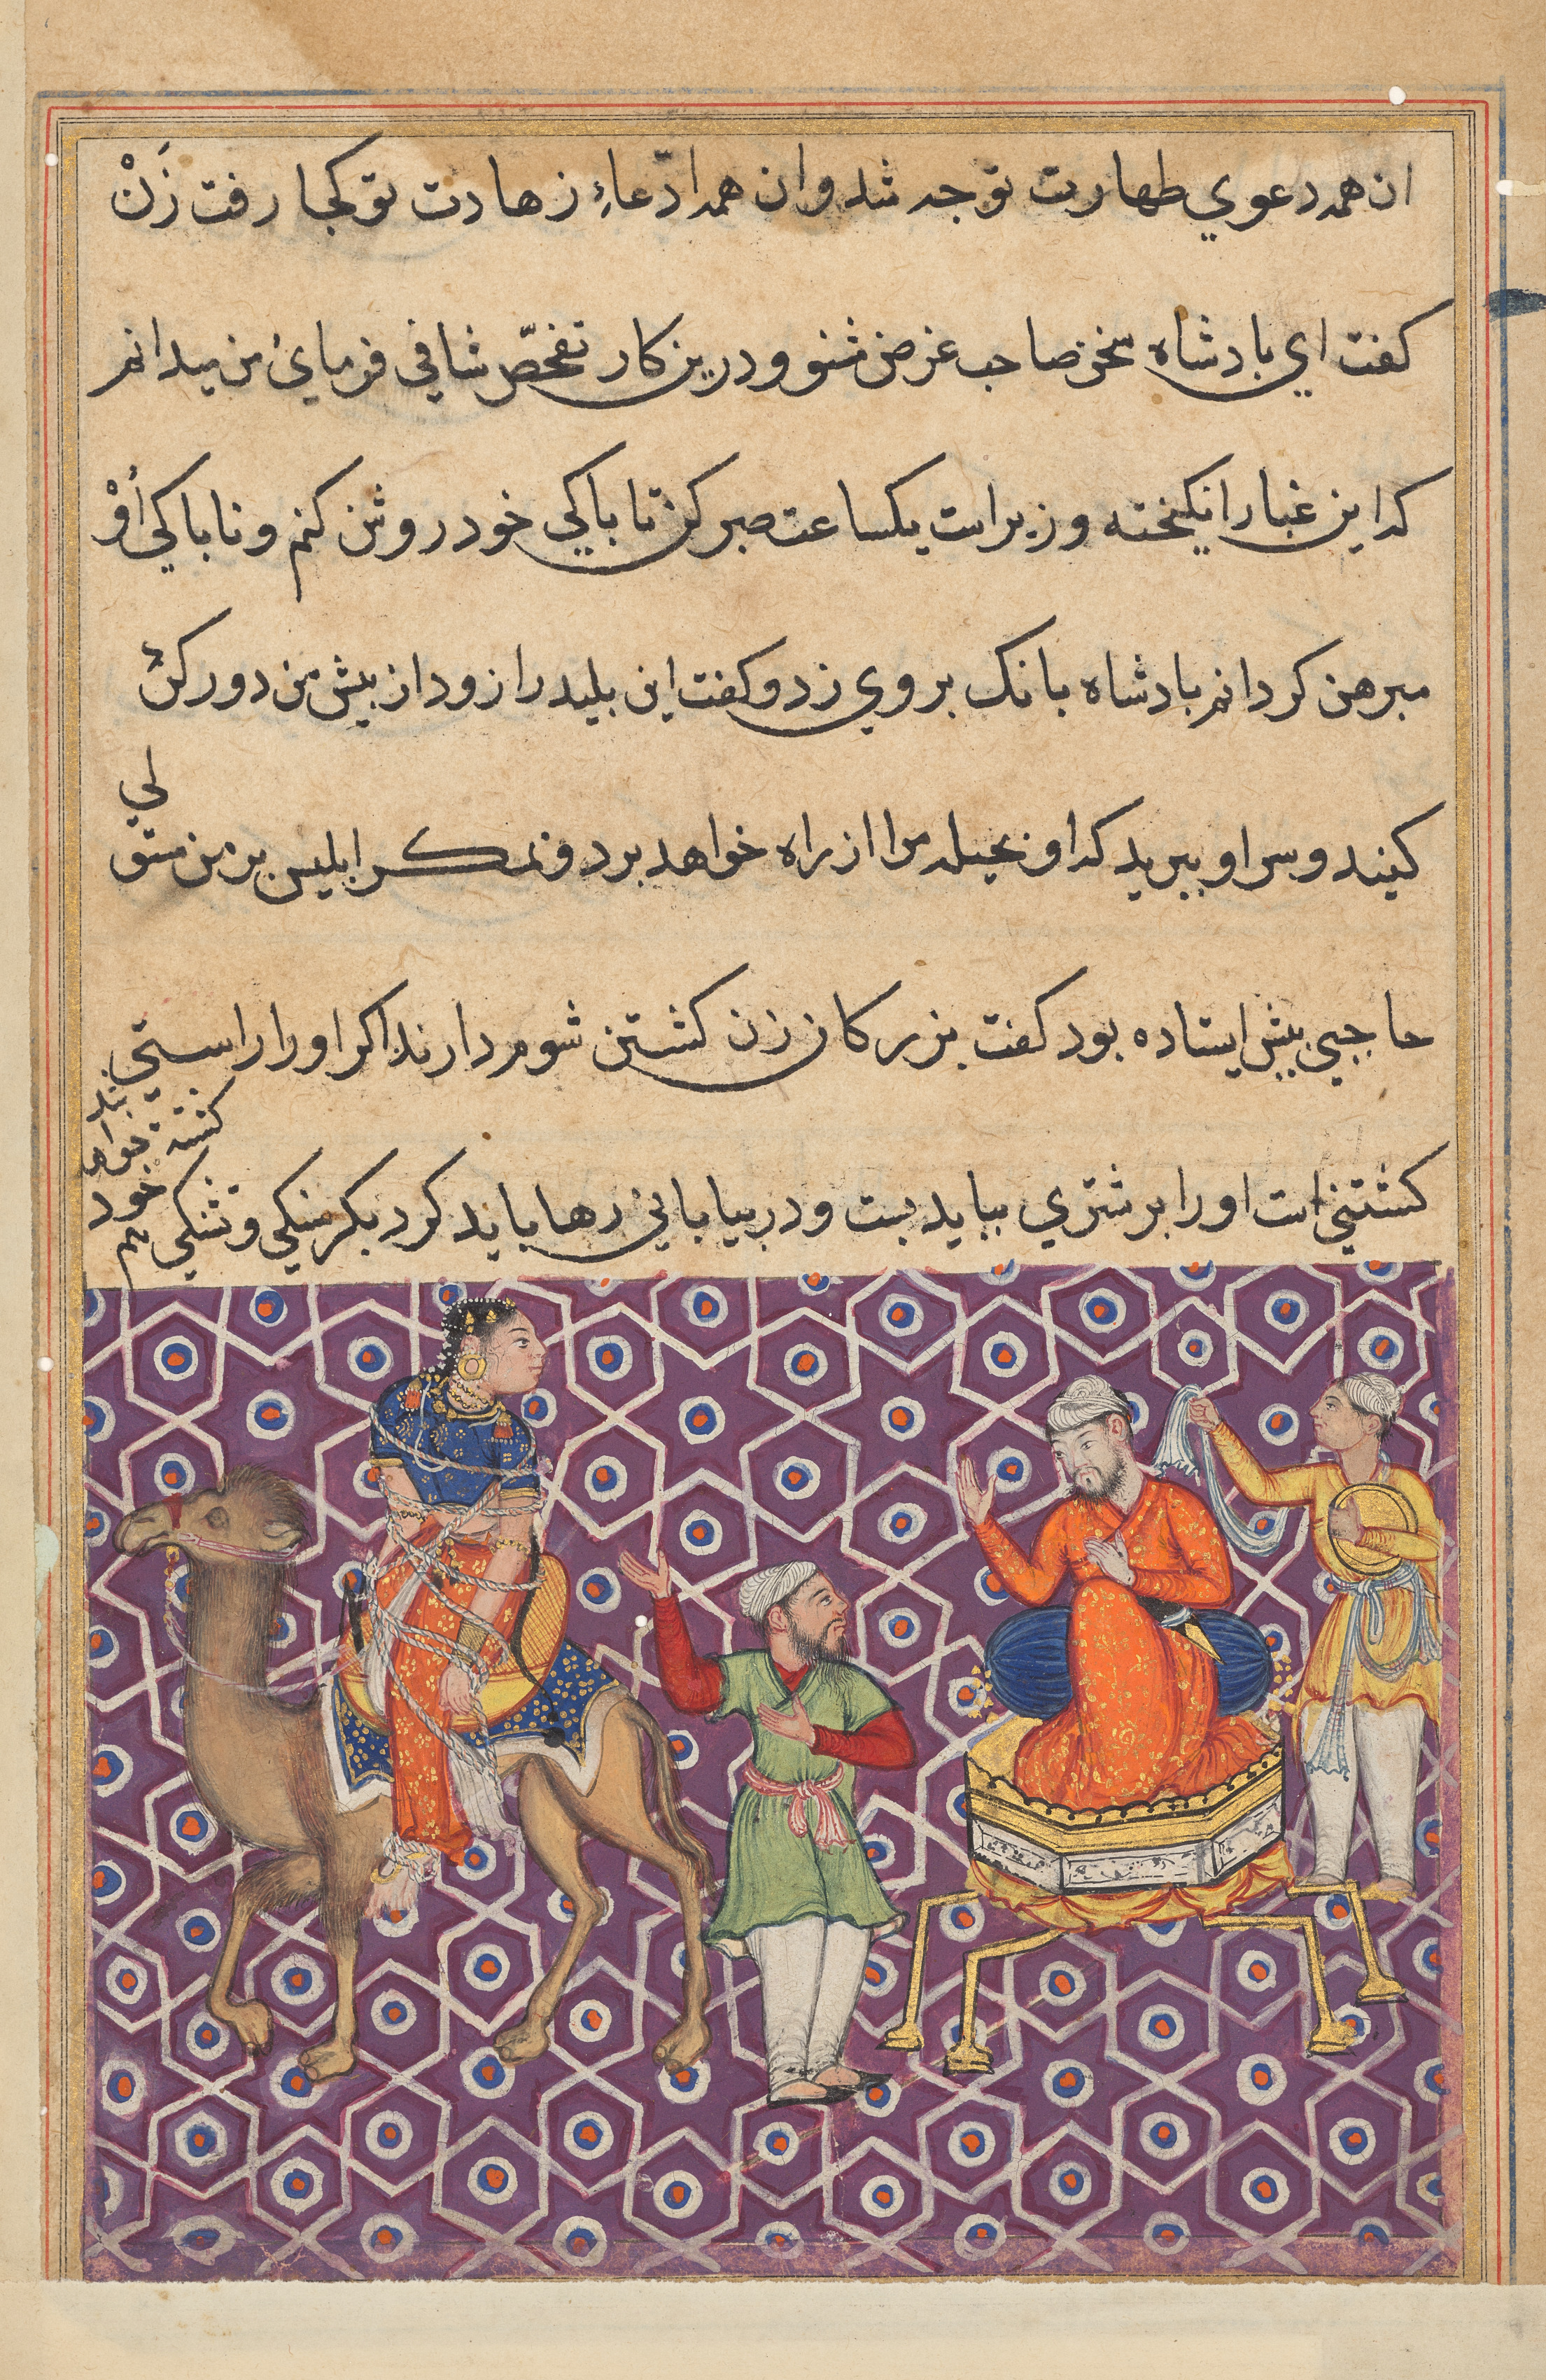 ان همه دعوي طهارت تو چه شد و ان همه ادّعاءِ زهادت تو کجا رفت زَنْ
کفت اي بادشاه سخن صاحب غرض مشنو و درين کار تفحّص شافي فرماي من ميدانم
که اين غبار انکيخته وزيراست يکساعت صبر کن تا باکي خود روشن کنم و ناباکي اُوْ
مبرهن کردانم بادشاه بانک بر وي زد و کفت اين بليد را زود از بيش من دور کنْ
کنيد و سر او ببريد که او بحيله مرا از راه خواهد برد و مکر ابليس بر من مستو
لي
حاجبي بيش ايستاده بود کفت بزرکان زن کشتن شوم دارند اکر او را راستي
کشتني است او را بر شتري ببايد بست و در بياباني رها بايد کرد بکرسنکي و تشنکي هم
خود
کشته خواهد شد